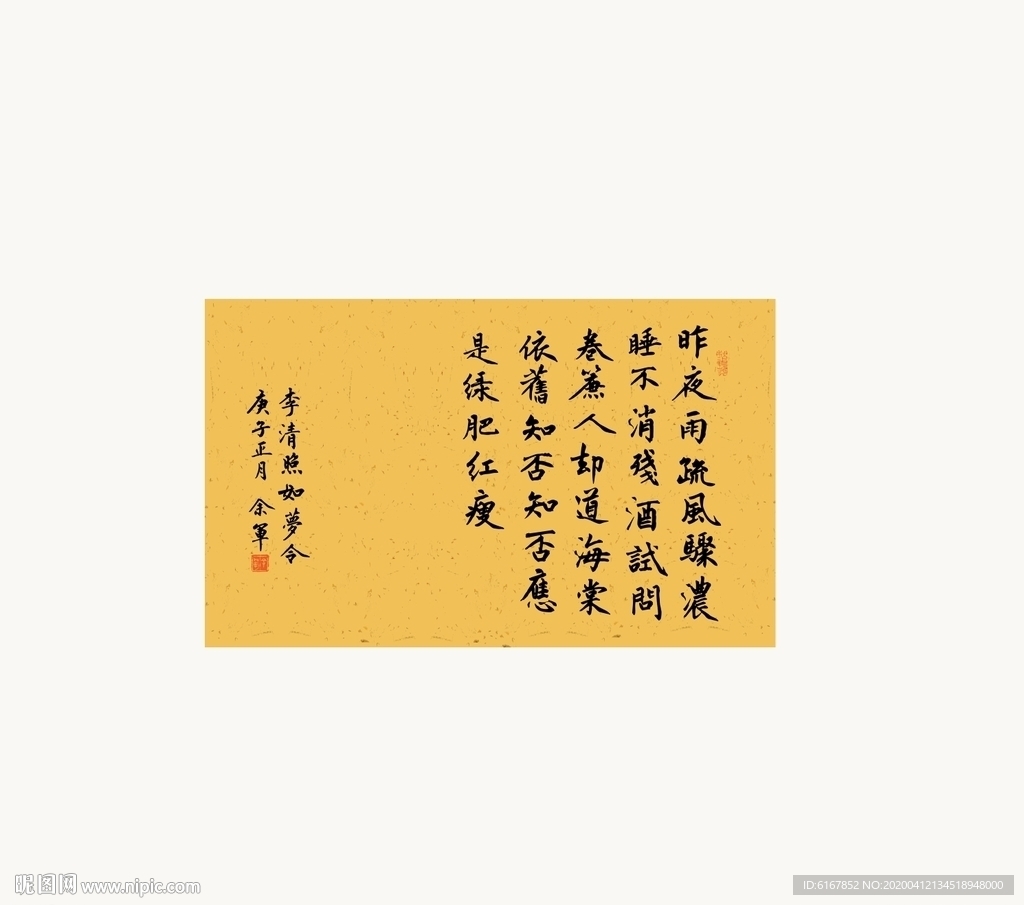 昨夜雨疏風驟濃
睡不消殘酒試問
卷簾人却道海棠
依舊知否知否應
是绿肥红瘦
李清照如夢令
庚子正月 余軍
昵图网 www.nipic.com
ID:6167852 NO:20200412134518948000